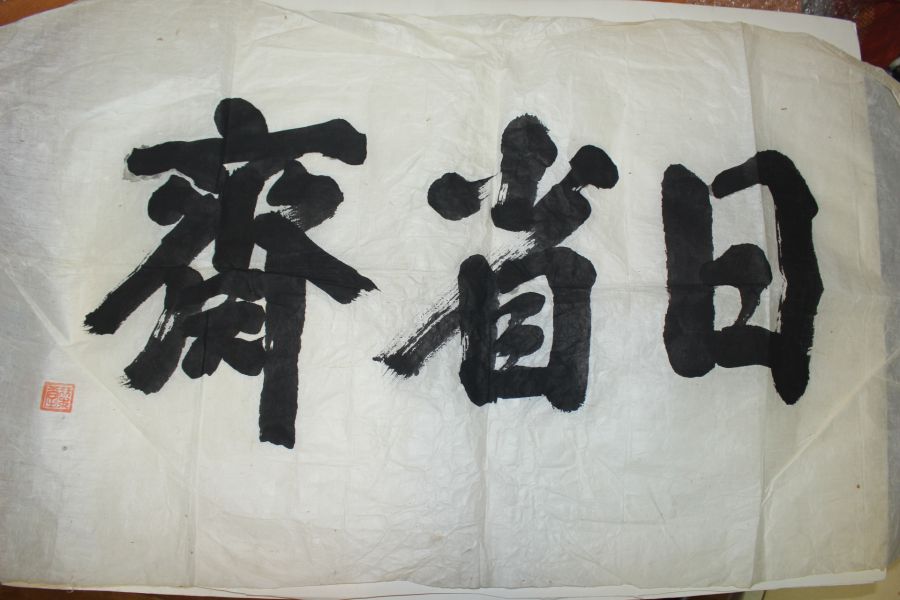 日省齋